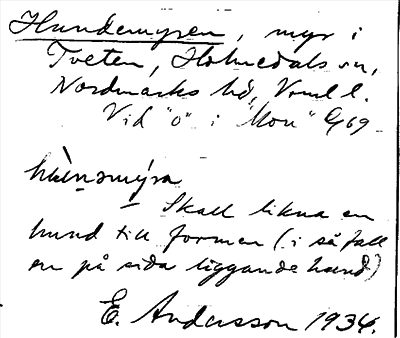 Hundemyren, myr i
Tveten, Holmedals sn,
Nordmarks hd, Vrml l.
Vid "o" i "Mon" C 69
hùnəmýra
Skall likna en
hund till formen (i så fall
en på sida liggande hund)
E. Andersson 1934.